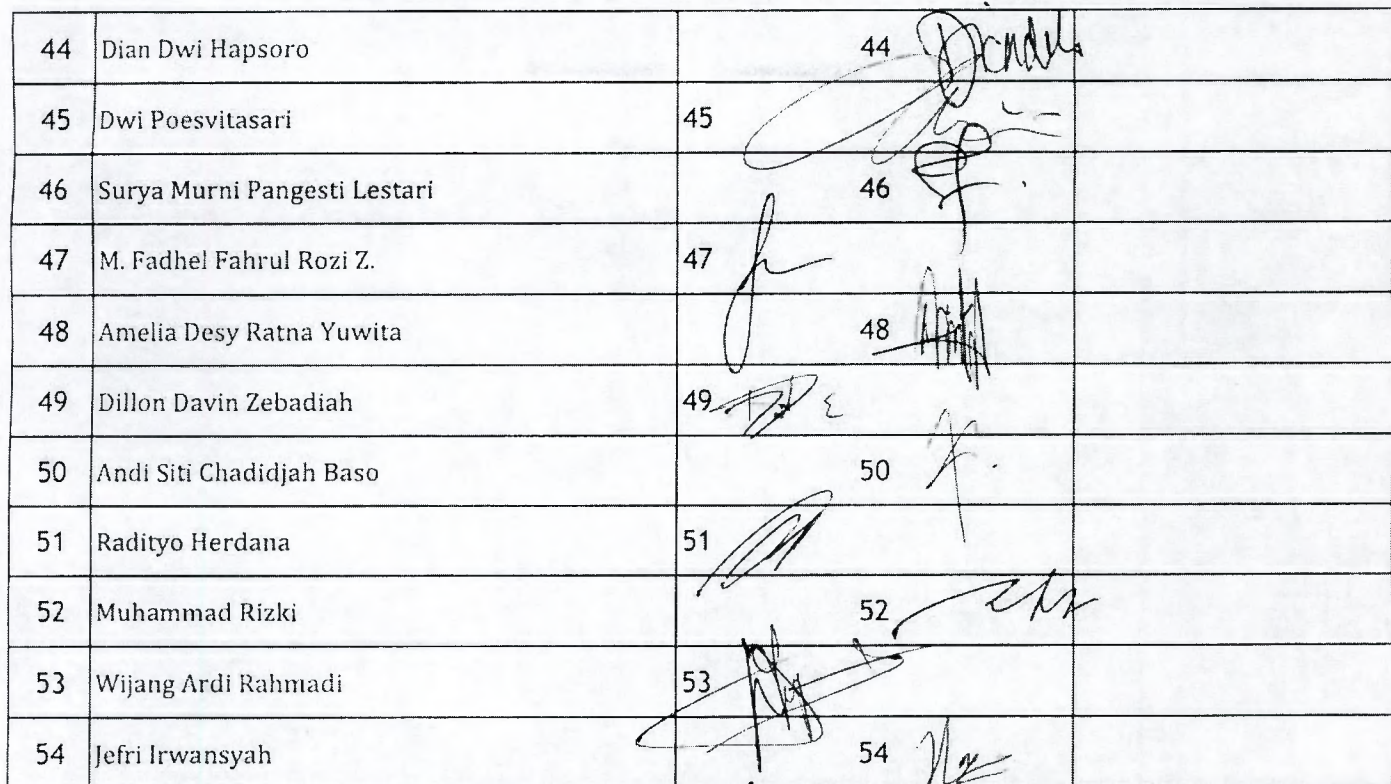 44 Dian Dwi Hapsoro 44
45 Dwi Poesvitasari 45
46 Surya Murni Pangesti Lestari 46
47 M. Fadhel Fahrul Rozi Z. 47
48 Amelia Desy Ratna Yuwita 48
49 Dillon Davin Zebadiah 49
50 Andi Siti Chadidjah Baso 50
51 Radityo Herdana 51
52 Muhammad Rizki 52
53 Wijang Ardi Rahmadi 53
54 Jefri Irwansyah 54